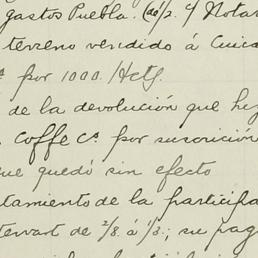 gastos Puebla. (ao/2. y Notar
terreno vendido á Cuica
por 1000. /Hctg.
de la devolución que hiz
Coffe Ca. por suscrición
que quedó sin efecto
tamiento de la participa
tervart de 2/8. á 1/3.; su pag